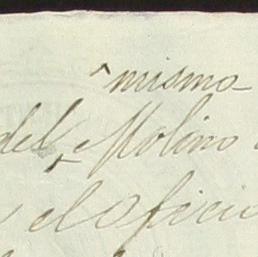 ^ mismo
del ^ Molino
el oficio